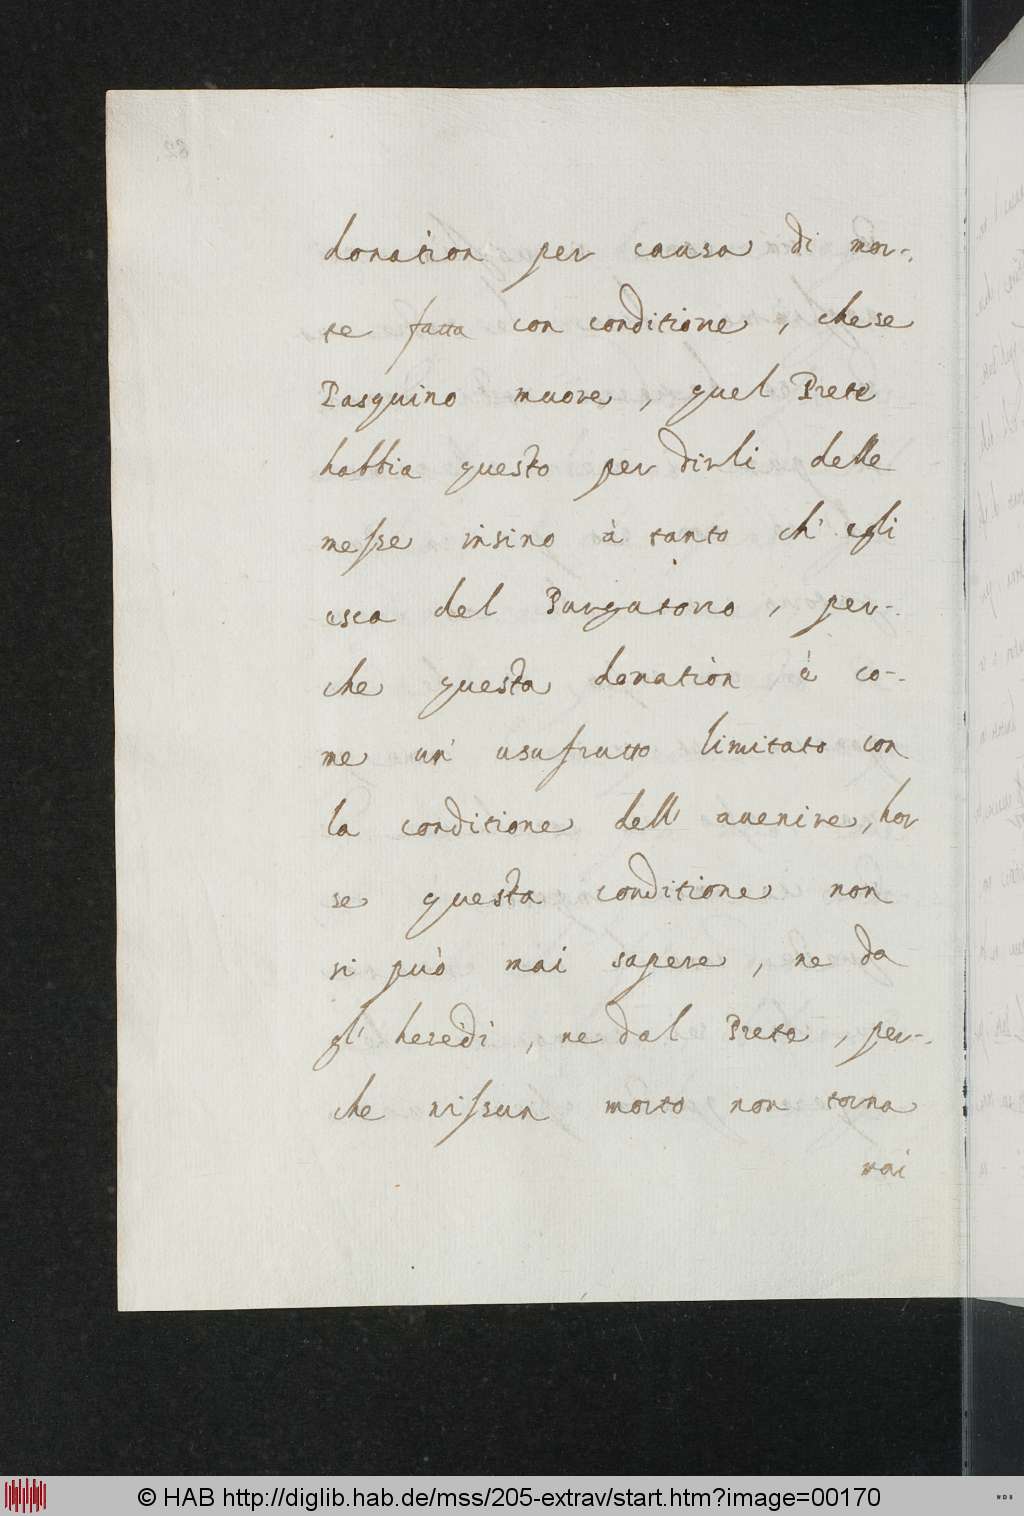 donation per causa di mor-
te fatta con conditione, che se
Pasquino muore, quel Prete
habbia questo per dirli delle
messe insino à tanto ch' egli
esca del Purgatorio, per-
che questa donation è co-
me un' usufrutto limitato con
la conditione dell' auenire, hor
se questa conditione non
si può mai sapere, ne da
gl' heredi, ne dal Prete, per-
che nissun morto non torna
mai
© HAB http://diglib.hab.de/mss/205-extrav/start.htm?image=00170